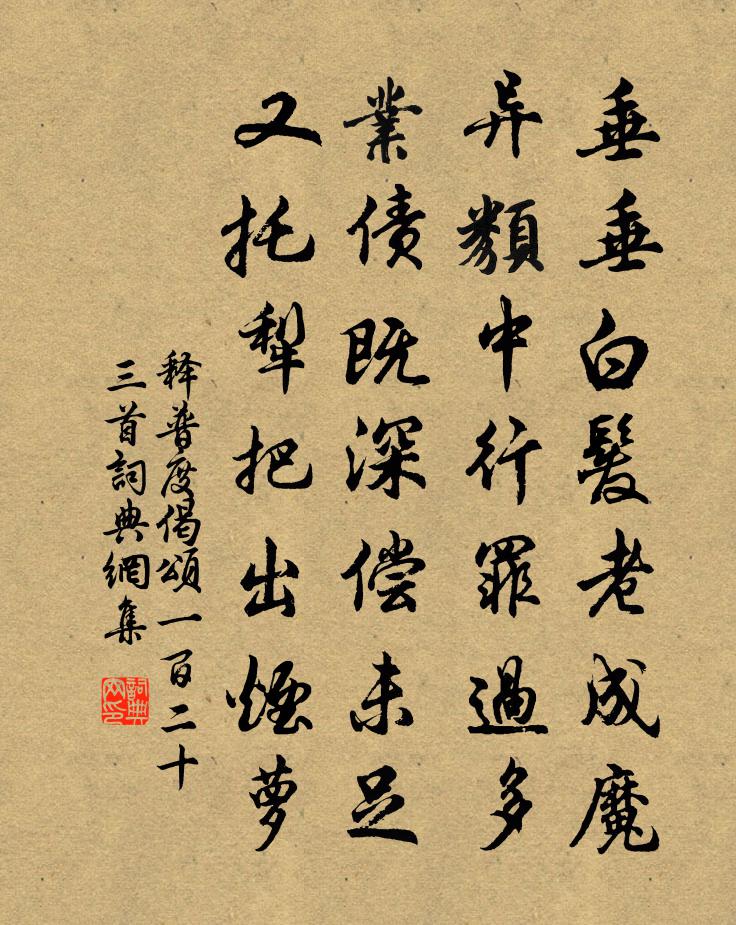 垂垂白髮老成魔
异類中行罪過多
業債既深偿未足
又托犁把出煙萝
释普度偈頌一百二十
三首詞典網集
詞典
网印